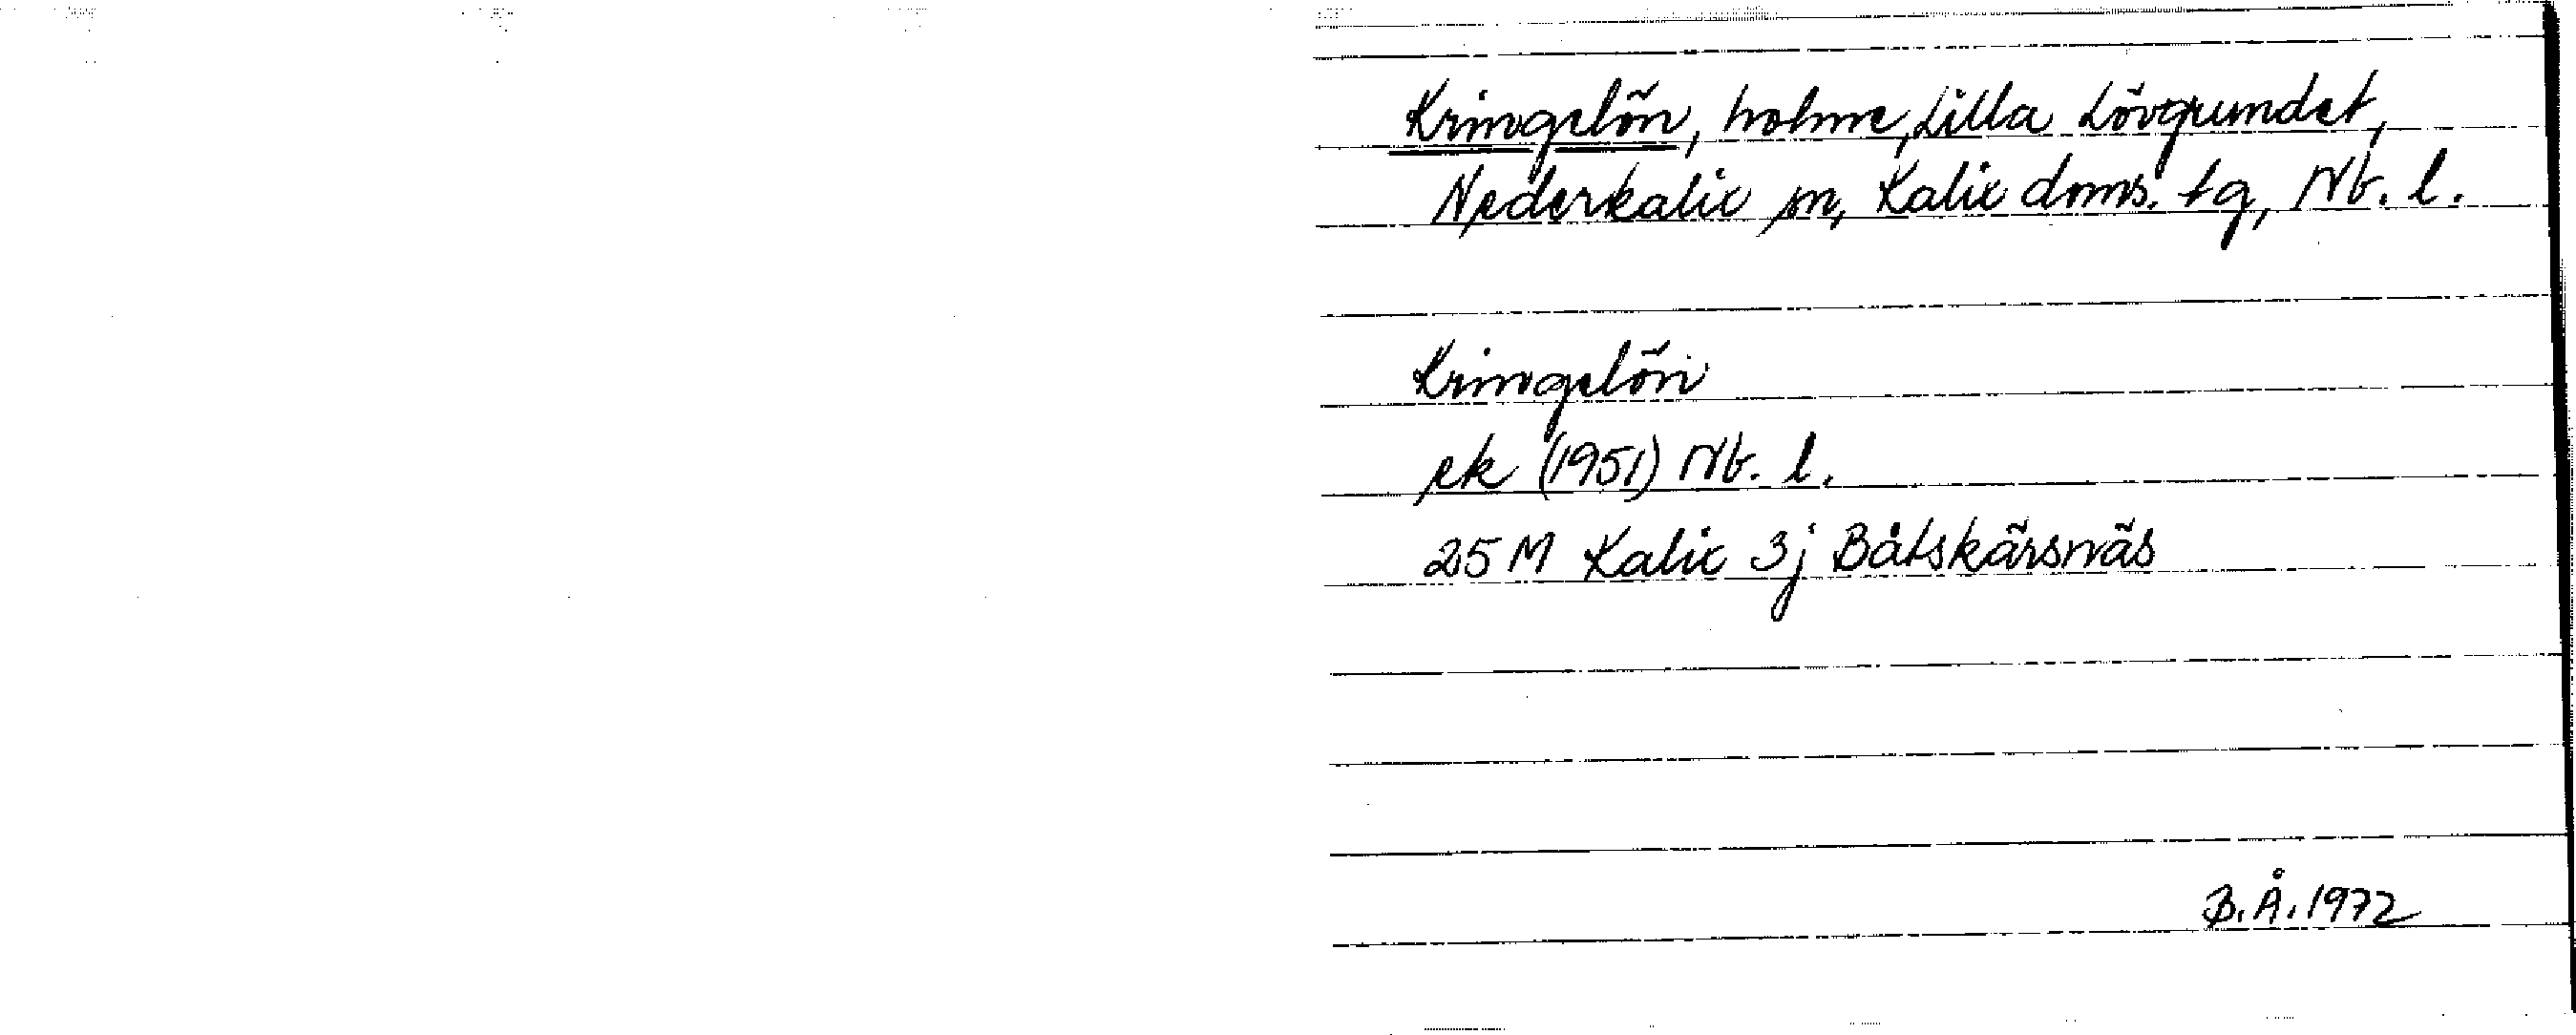 Kringelön, holme, Lilla Lövgrundet,
Nederkalix sn, Kalix doms. tg, Nb. l.
Kringelön
ek (1951) Nb. l.
25 M Kalix 3j Båtskärsnäs
B.Å. 1972